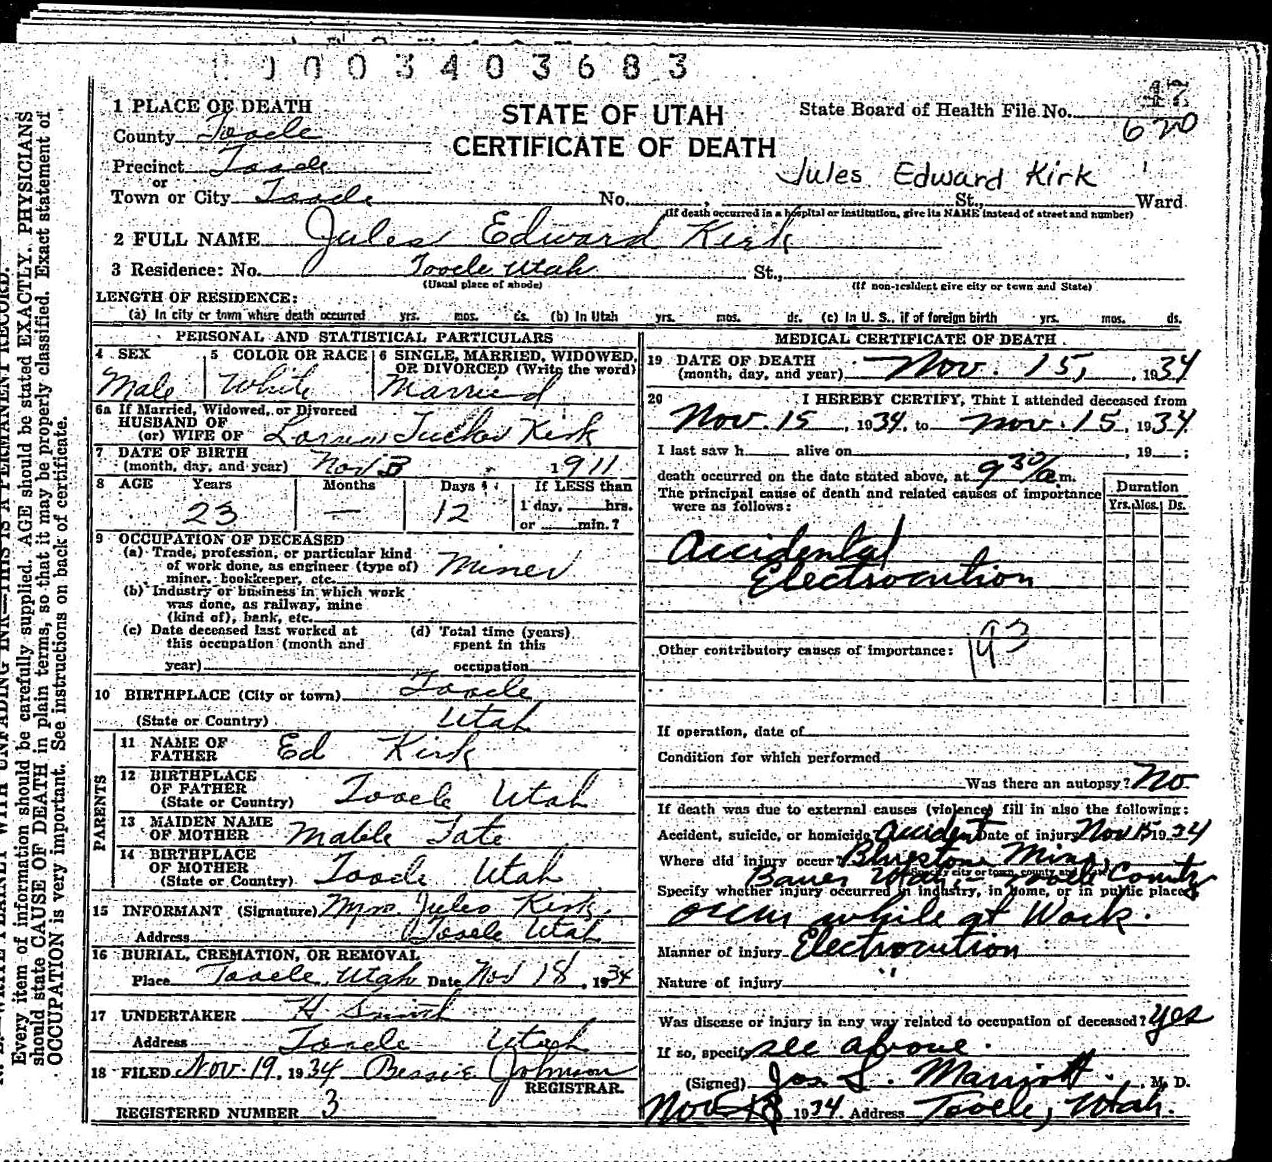 1 0 0 3 4 0 3 6 8 3
1 PLACE OF DEATH
STATE OF UTAH
CERTIFICATE OF DEATH
State Board of Health File No. 47
620
County Tooele
Precinct Tooele
or
Jules Edward Kirk
Town or City Tooele No. , St., Ward
(If death occurred in a hospital or institution, give its NAME instead of street and number)
2 FULL NAME Jules Edward Kirk
3 Residence: No. Tooele Utah St.,
(Usual place of abode) (If non-resident give city or town and State)
LENGTH OF RESIDENCE:
(a) In city or town where death occurred yrs. mos. ds. (b) In Utah yrs. mos. ds. (c) In U. S., if of foreign birth yrs. mos. ds.
PERSONAL AND STATISTICAL PARTICULARS
4 SEX 5 COLOR OR RACE 6 SINGLE, MARRIED, WIDOWED,
OR DIVORCED (Write the word)
Male White Married
6a If Married, Widowed, or Divorced
HUSBAND OF
(or) WIFE OF Tucker Kirk
7 DATE OF BIRTH
(month, day, and year) Nov 3 1911
8 AGE Years Months Days If LESS than
23 — 12 1 day, hrs.
or min.?
9 OCCUPATION OF DECEASED
(a) Trade, profession, or particular kind
of work done, as engineer (type of)
miner, bookkeeper, etc. Miner
(b) Industry or business in which work
was done, as railway, mine
(kind of), bank, etc.
(c) Date deceased last worked at (d) Total time (years)
this occupation (month and spent in this
year) occupation
10 BIRTHPLACE (City or town) Tooele
(State or Country) Utah
PARENTS
11 NAME OF
FATHER Ed Kirk
12 BIRTHPLACE
OF FATHER
(State or Country) Tooele Utah
13 MAIDEN NAME
OF MOTHER Mable Tate
14 BIRTHPLACE
OF MOTHER
(State or Country) Tooele Utah
15 INFORMANT (Signature) Mrs. Jules Kirk
Address Tooele Utah
16 BURIAL, CREMATION, OR REMOVAL
Place Tooele, Utah Date Nov 18, 1934
17 UNDERTAKER H Smith
Address Tooele Utah
18 FILED Nov. 19, 1934 Bessie Johnson
REGISTRAR.
REGISTERED NUMBER 3
MEDICAL CERTIFICATE OF DEATH
19 DATE OF DEATH
(month, day, and year) Nov. 15, , 1934
20 I HEREBY CERTIFY, That I attended deceased from
Nov. 15, 1934, to Nov. 15, 1934
I last saw h alive on , 19 ;
death occurred on the date stated above, at 9 30/a m.
The principal cause of death and related causes of importance
were as follows:
Duration
Yrs. Mos. Ds.
Accidental
Electrocution
Other contributory causes of importance: 193
If operation, date of
Condition for which performed
Was there an autopsy? No
If death was due to external causes (violence) fill in also the following:
Accident, suicide, or homicide Accident Date of injury Nov 15 1934
Where did injury occur? Bluestone Mine,
(Specify city or town, county and State)
Bauer Utah Tooele County
Specify whether injury occurred in industry, in home, or in public place
occur while at Work.
Manner of injury Electrocution
Nature of injury "
Was disease or injury in any way related to occupation of deceased? Yes
If so, specify see above.
(Signed) Jos. S. Marriott. M. D.
Nov 18 1934. Address Tooele, Utah.
Every item of information should be carefully supplied. AGE should be stated EXACTLY. PHYSICIANS
should state CAUSE OF DEATH in plain terms, so that it may be properly classified. Exact statement of
OCCUPATION is very important. See instructions on back of certificate.